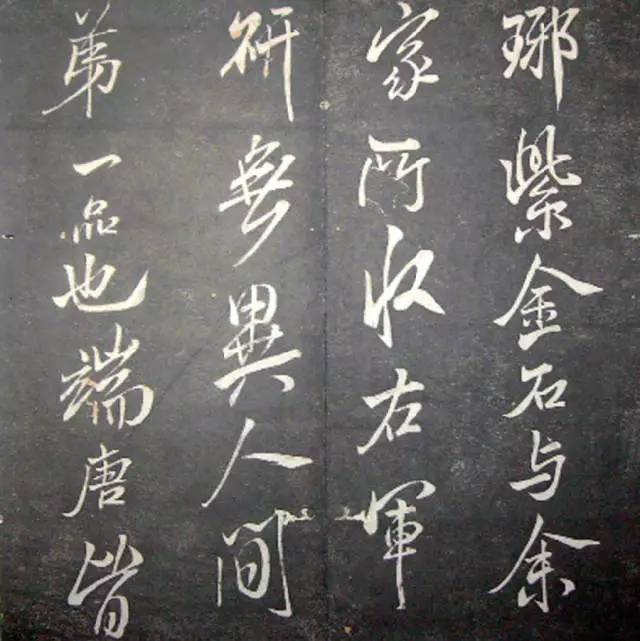 琊紫金石与余
家所收右軍
研無異人間
第一品也端唐皆